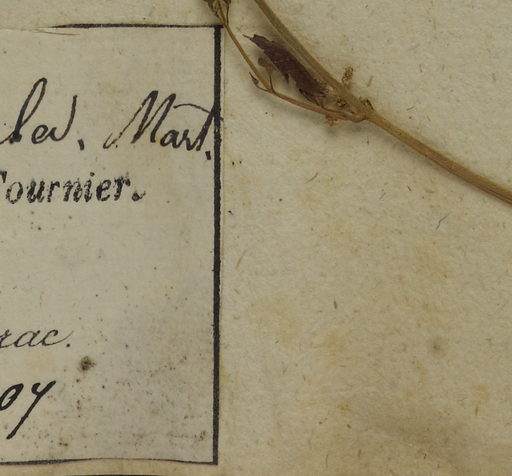 led. Mart.
Fournier.
rac.
07